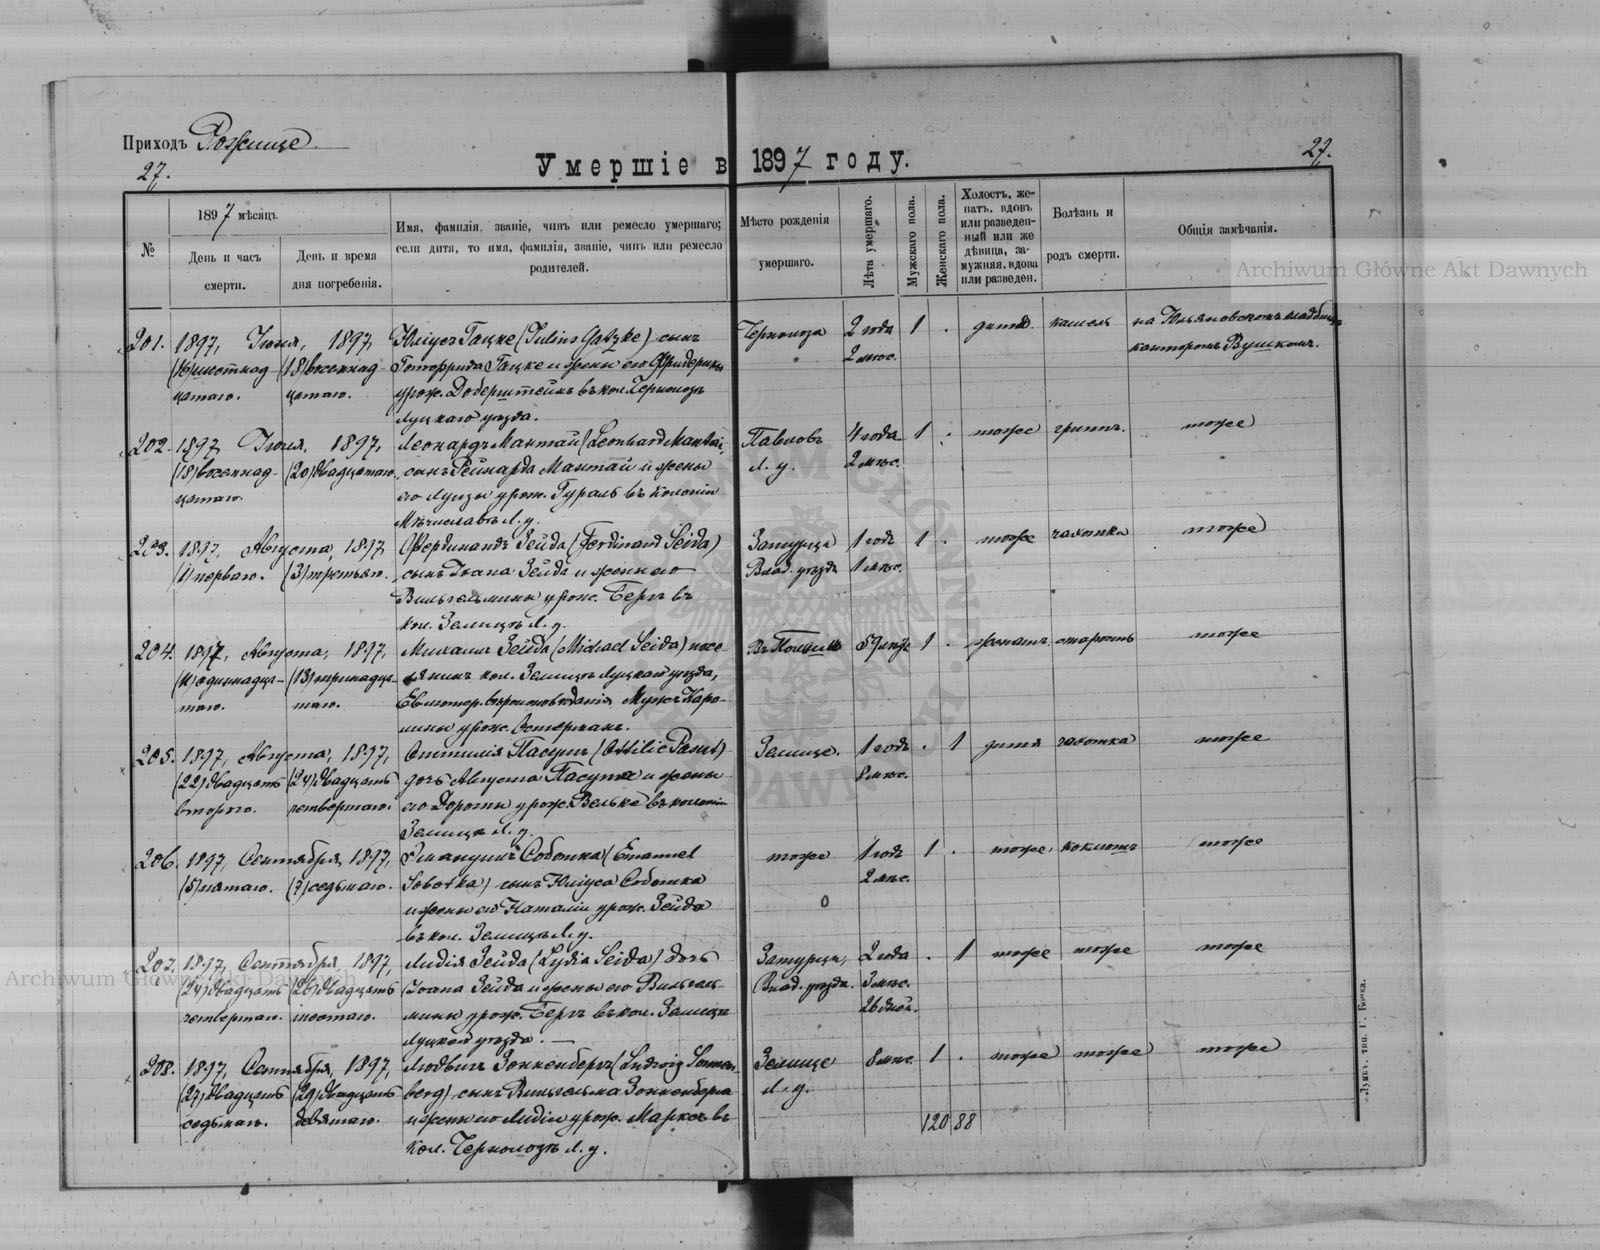 Приходъ Рожище.
27.
Умершіе въ 1897 году.
27.
№
1897 мѣсяцъ
День и часъ смерти.
День и время дня погребенія.
Имя, фамилія, званіе, чинъ или ремесло умершаго;
если дитя, то имя, фамилія, званіе, чинъ или ремесло
родителей.
Мѣсто рожденія
умершаго.
Лѣта умершаго.
Мужскаго пола.
Женскаго пола.
Холостъ, же-
натъ, вдовъ
или разведен-
ный или же
дѣвица, за-
мужняя, вдова
или разведен.
Болѣзнь и
родъ смерти.
Общія замѣчанія.
Archiwum Główne Akt Dawnych
201. 1897, Іюля, 1897, Юліусъ Гацке (Julius Gatzke) сынъ Чернолоза 2 года 1 . дитя. кашель на Юльяновскомъ кладбищѣ
(16) шестнад (18) восемнад- Готфрида Гацке и жены его Фридерики 2 мѣс. канторомъ Вушкомъ.
цатаго. цатаго. урож. Доберштейнъ въ кол. Чернолозъ
Луцкаго уѣзда.
202. 1897, Іюля, 1897, Леонардъ Мантай (Leonhard Mantai, Павловъ 4 года 1 . тоже гриппъ. тоже
(18) восемнад- (20) двадцатаго. сынъ Рейнарда Мантай и жены Л. у. 2 мѣс.
цатаго. его Луизы урож. Гураль въ колоніи
Мѣчиславъ Л. у.
203. 1897, Августа, 1897 Фердинандъ Зейда (Ferdinand Seida) Затурце 1 годъ 1 . тоже чахотка тоже
(1) перваго. (3) третьяго. сынъ Іоана Зейда и жены его Влад. уѣзда 1 мѣс.
Вильгельмины урож. Бергъ въ
кол. Землицѣ Л. у.
204. 1897, Августа, 1897, Михаилъ Зейда (Michael Seida) посе- Въ Польшѣ 57 лѣтъ 1 . женатъ. старость тоже
(11) одиннадца- (13) тринадца- лянинъ кол. Землицъ Луцкаго уѣзда,
таго. таго. Ев. лютер. вѣроисповѣданія Мужъ Каро-
лины урож. Остерманъ.
205. 1897, Августа, 1897, Оттилія Пасутъ (Ottilie Pasut) Землице. 1 годъ . 1 дитя чахотка тоже
(22) двадцать (24) двадцать дочь Августа Пасута и жены 8 мѣс.
втораго. четвертаго. его Дороты урож. Вельке въ колоніи
Землицѣ Л. у.
206. 1897, Сентября, 1897, Эмануилъ Соботка (Emanuel тоже 1 годъ 1 . тоже коклюшъ тоже
(5) пятаго. (7) седьмаго. Sobotka) сынъ Юліуса Соботка 2 мѣс.
и жены его Наталіи урож. Зейда 0
въ кол. Землицѣ Л. у.
207. 1897, Сентября, 1897, Лидія Зейда (Lydia Seida) дочь Затурце, 2 года . 1 тоже тоже тоже
Archiwum Główne Akt Dawnych
(24) двадцать (26) двадцать Іоана Зейда и жены его Вильгель- Влад. уѣзда. 3 мѣс.
четвертаго. шестаго. мины урож. Бергъ въ кол. Землицѣ 26 дней.
Луцкаго уѣзда. —
208. 1897, Сентября, 1897, Людвигъ Зонненбергъ (Ludwig Sonnen- Землице 8 мѣс. 1 . тоже тоже тоже
(27) двадцать (29) двадцать berg) сынъ Вильгельма Зонненберга Л. у.
седьмаго. девятаго. и жены его Лидіи урож. Марксъ въ 120 88
кол. Чернолозъ Л. у.